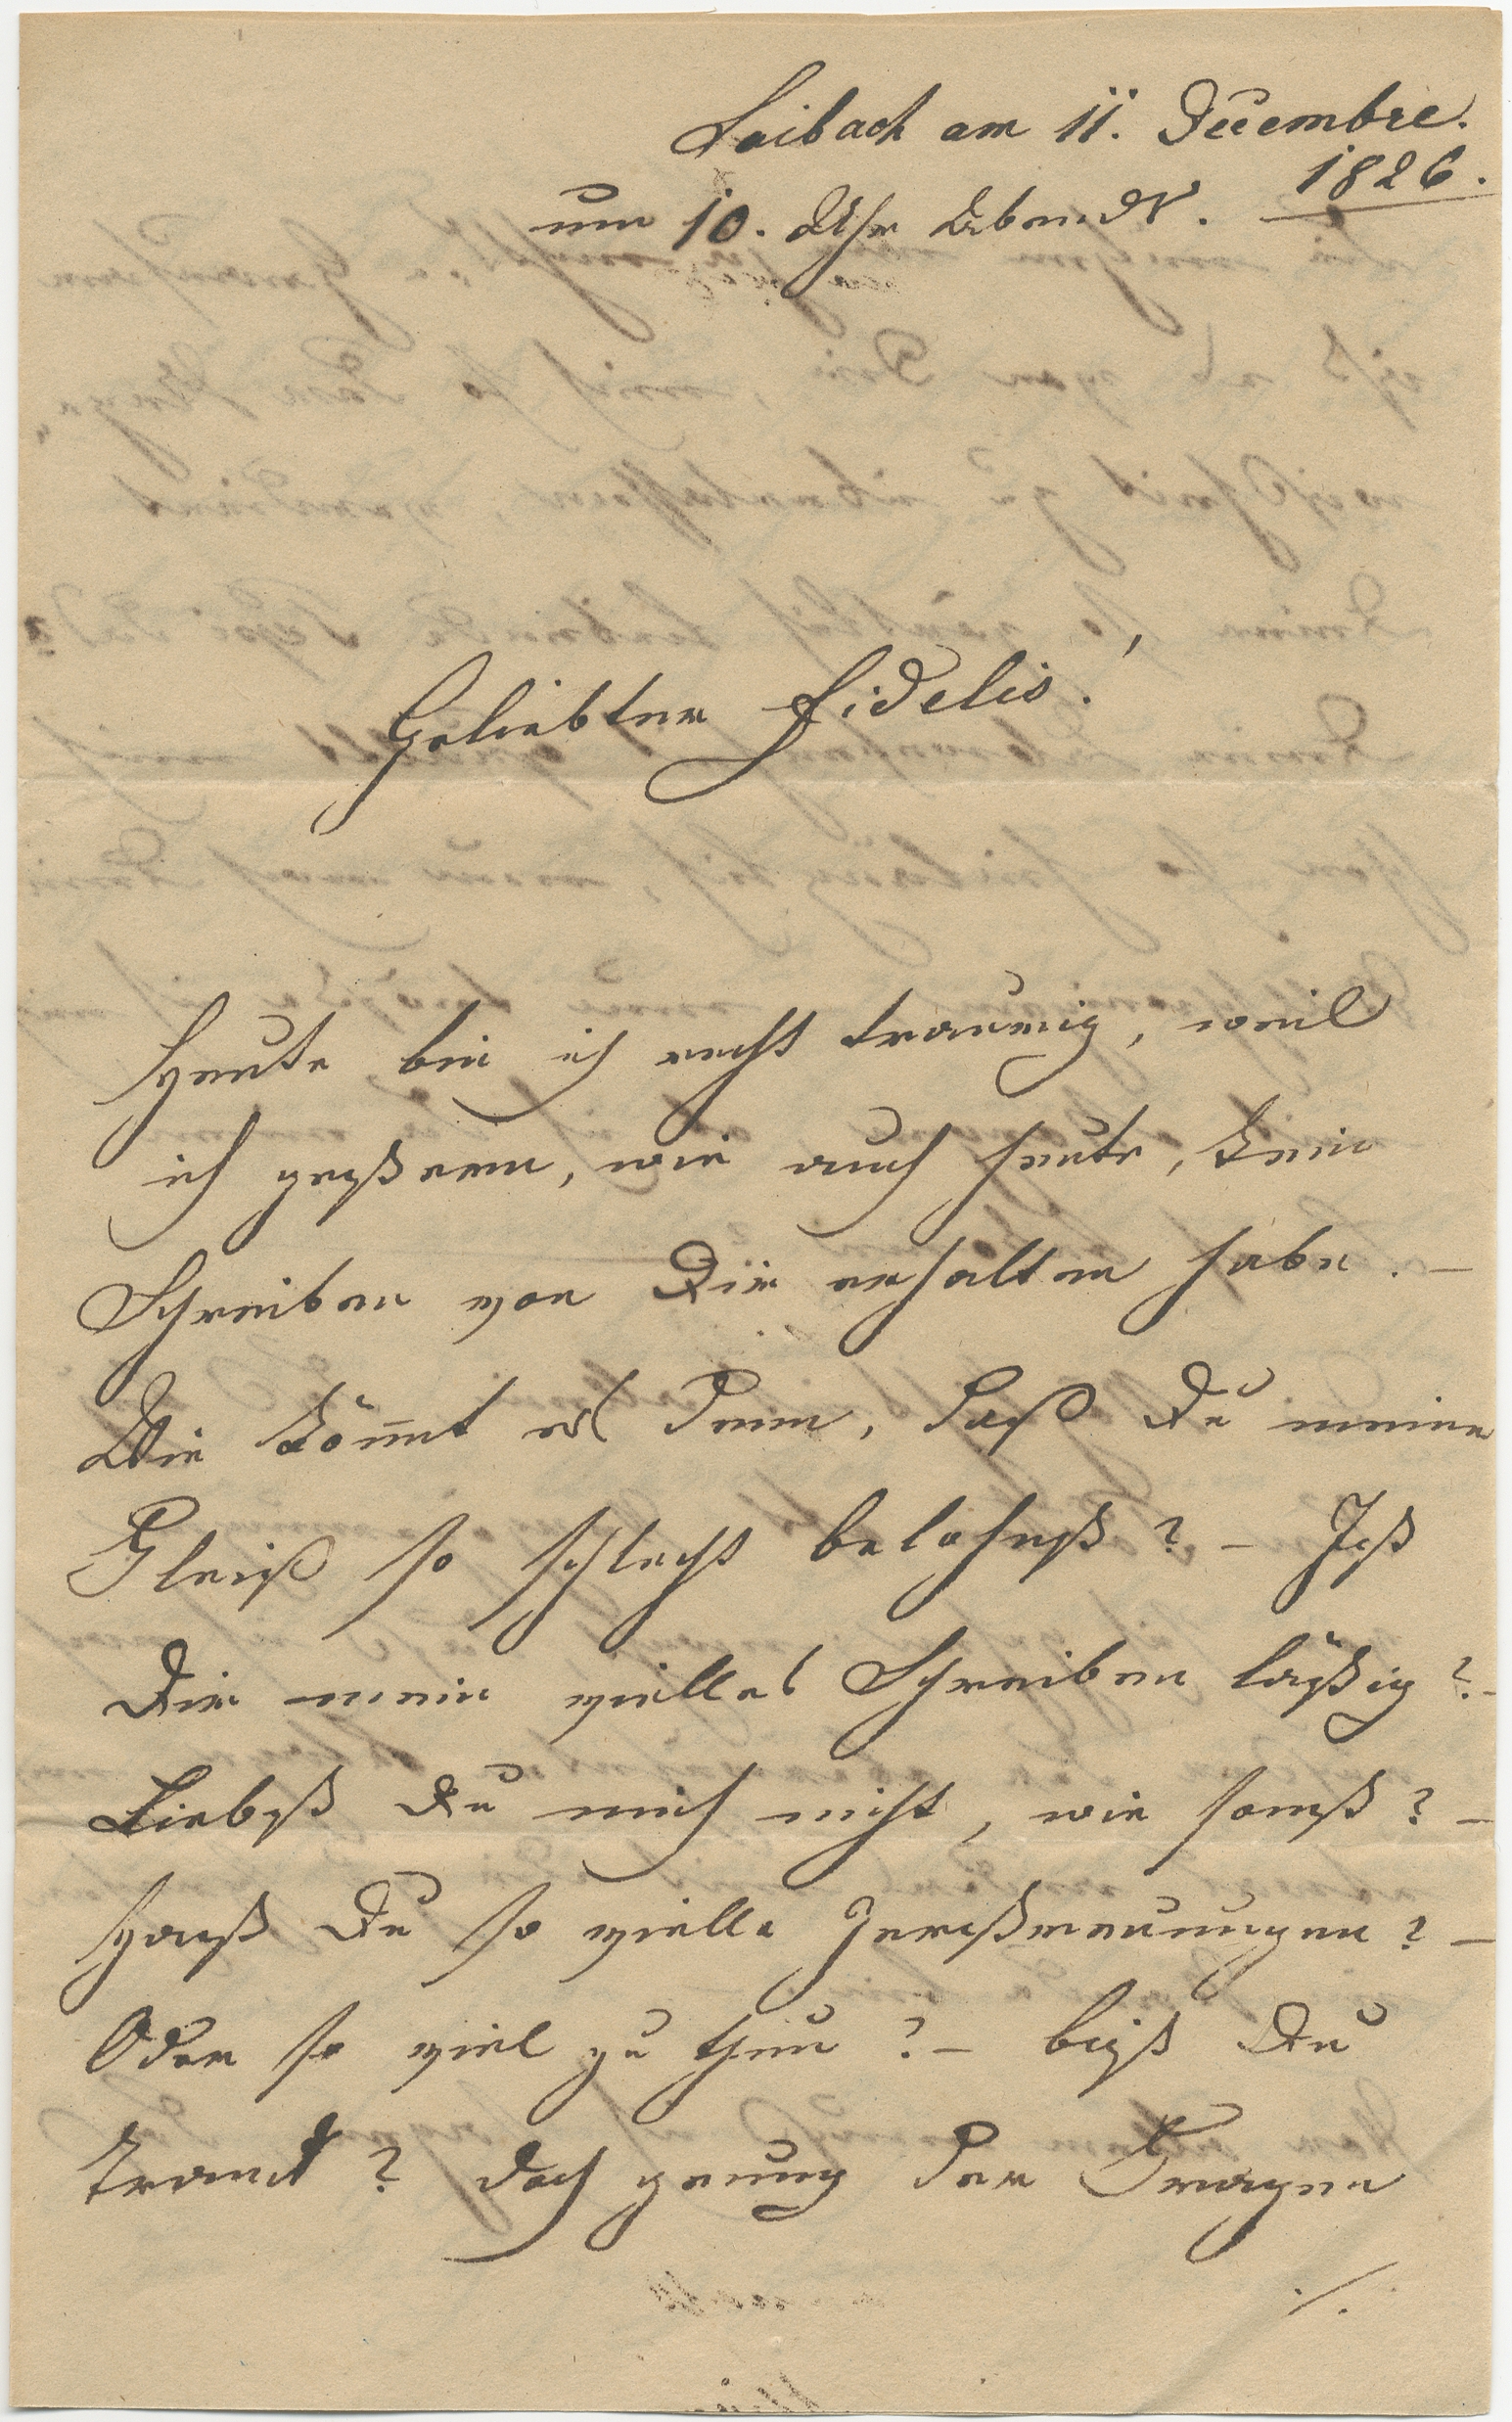 Laibach am 11. Decembre.
1826.
um 10. Uhr Abends.
Geliebter Fidelis!
Heute bin ich recht traurig, weil
ich gestern, wie auch heute, kein
Schreiben von Dir erhalten habe. –
Wie kömmt es denn, daß Du meinen
Fleiß so schlecht belohnst? – Ist
Dir mein vielles Schreiben lästig? –
Liebst Du mich nicht, wie sonst? –
Hast Du so vielle Zerstreuungen? –
Oder so viel zu thun? – bist Du
krank? doch genug der Fragen
./.